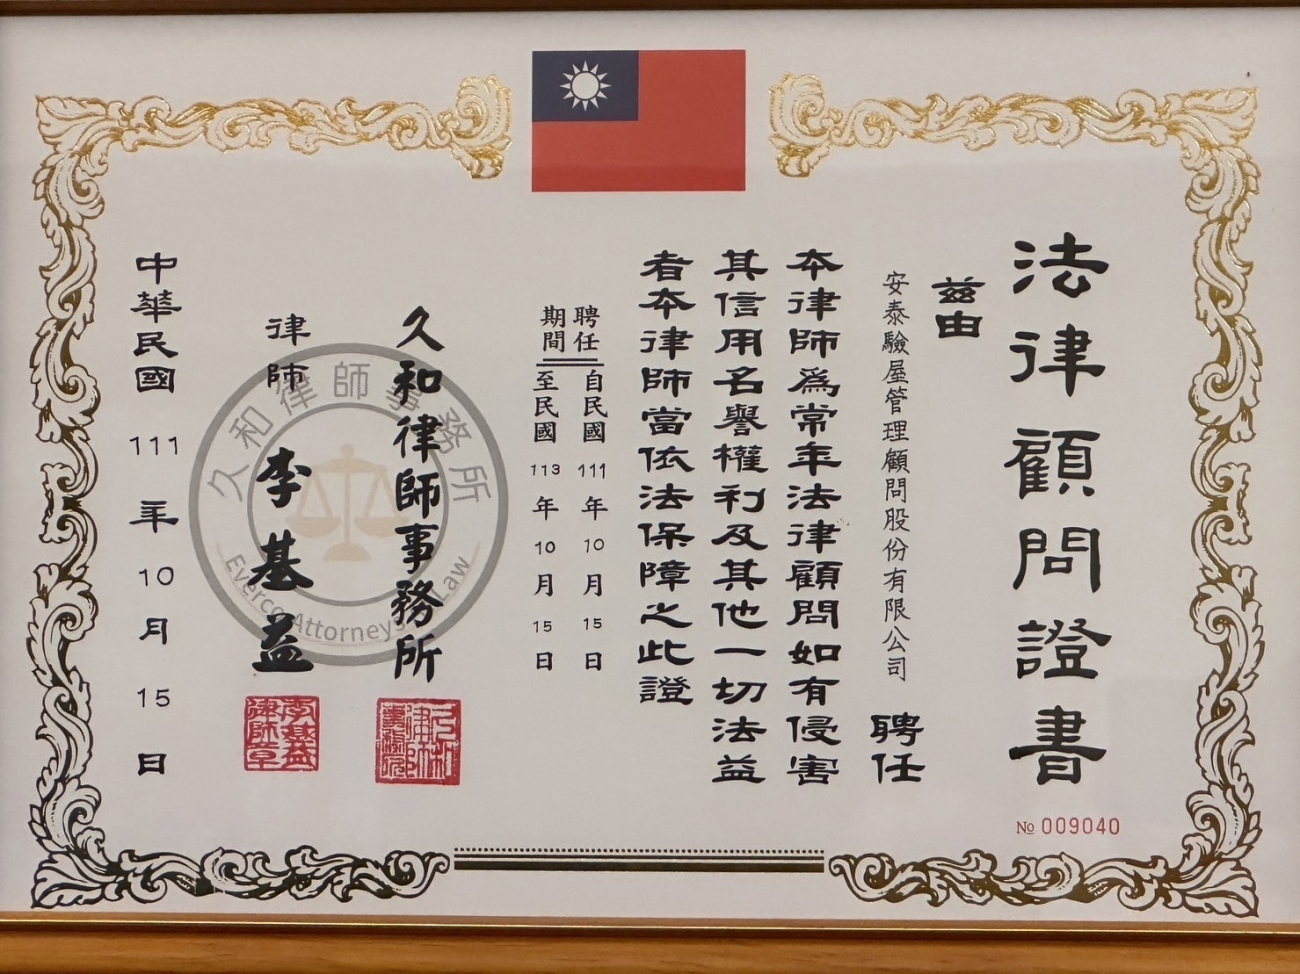 法律顧問證書
№ 009040
茲由
安泰驗屋管理顧問股份有限公司 聘任
本律師為常年法律顧問如有侵害
其信用名譽權利及其他一切法益
者本律師當依法保障之此證
聘任期間
自民國111年10月15日
至民國113年10月15日
久和律師事務所
律師 李基益
李基益律師章
中華民國111年10月15日
久和律師事務所
Everco Attorneys Law